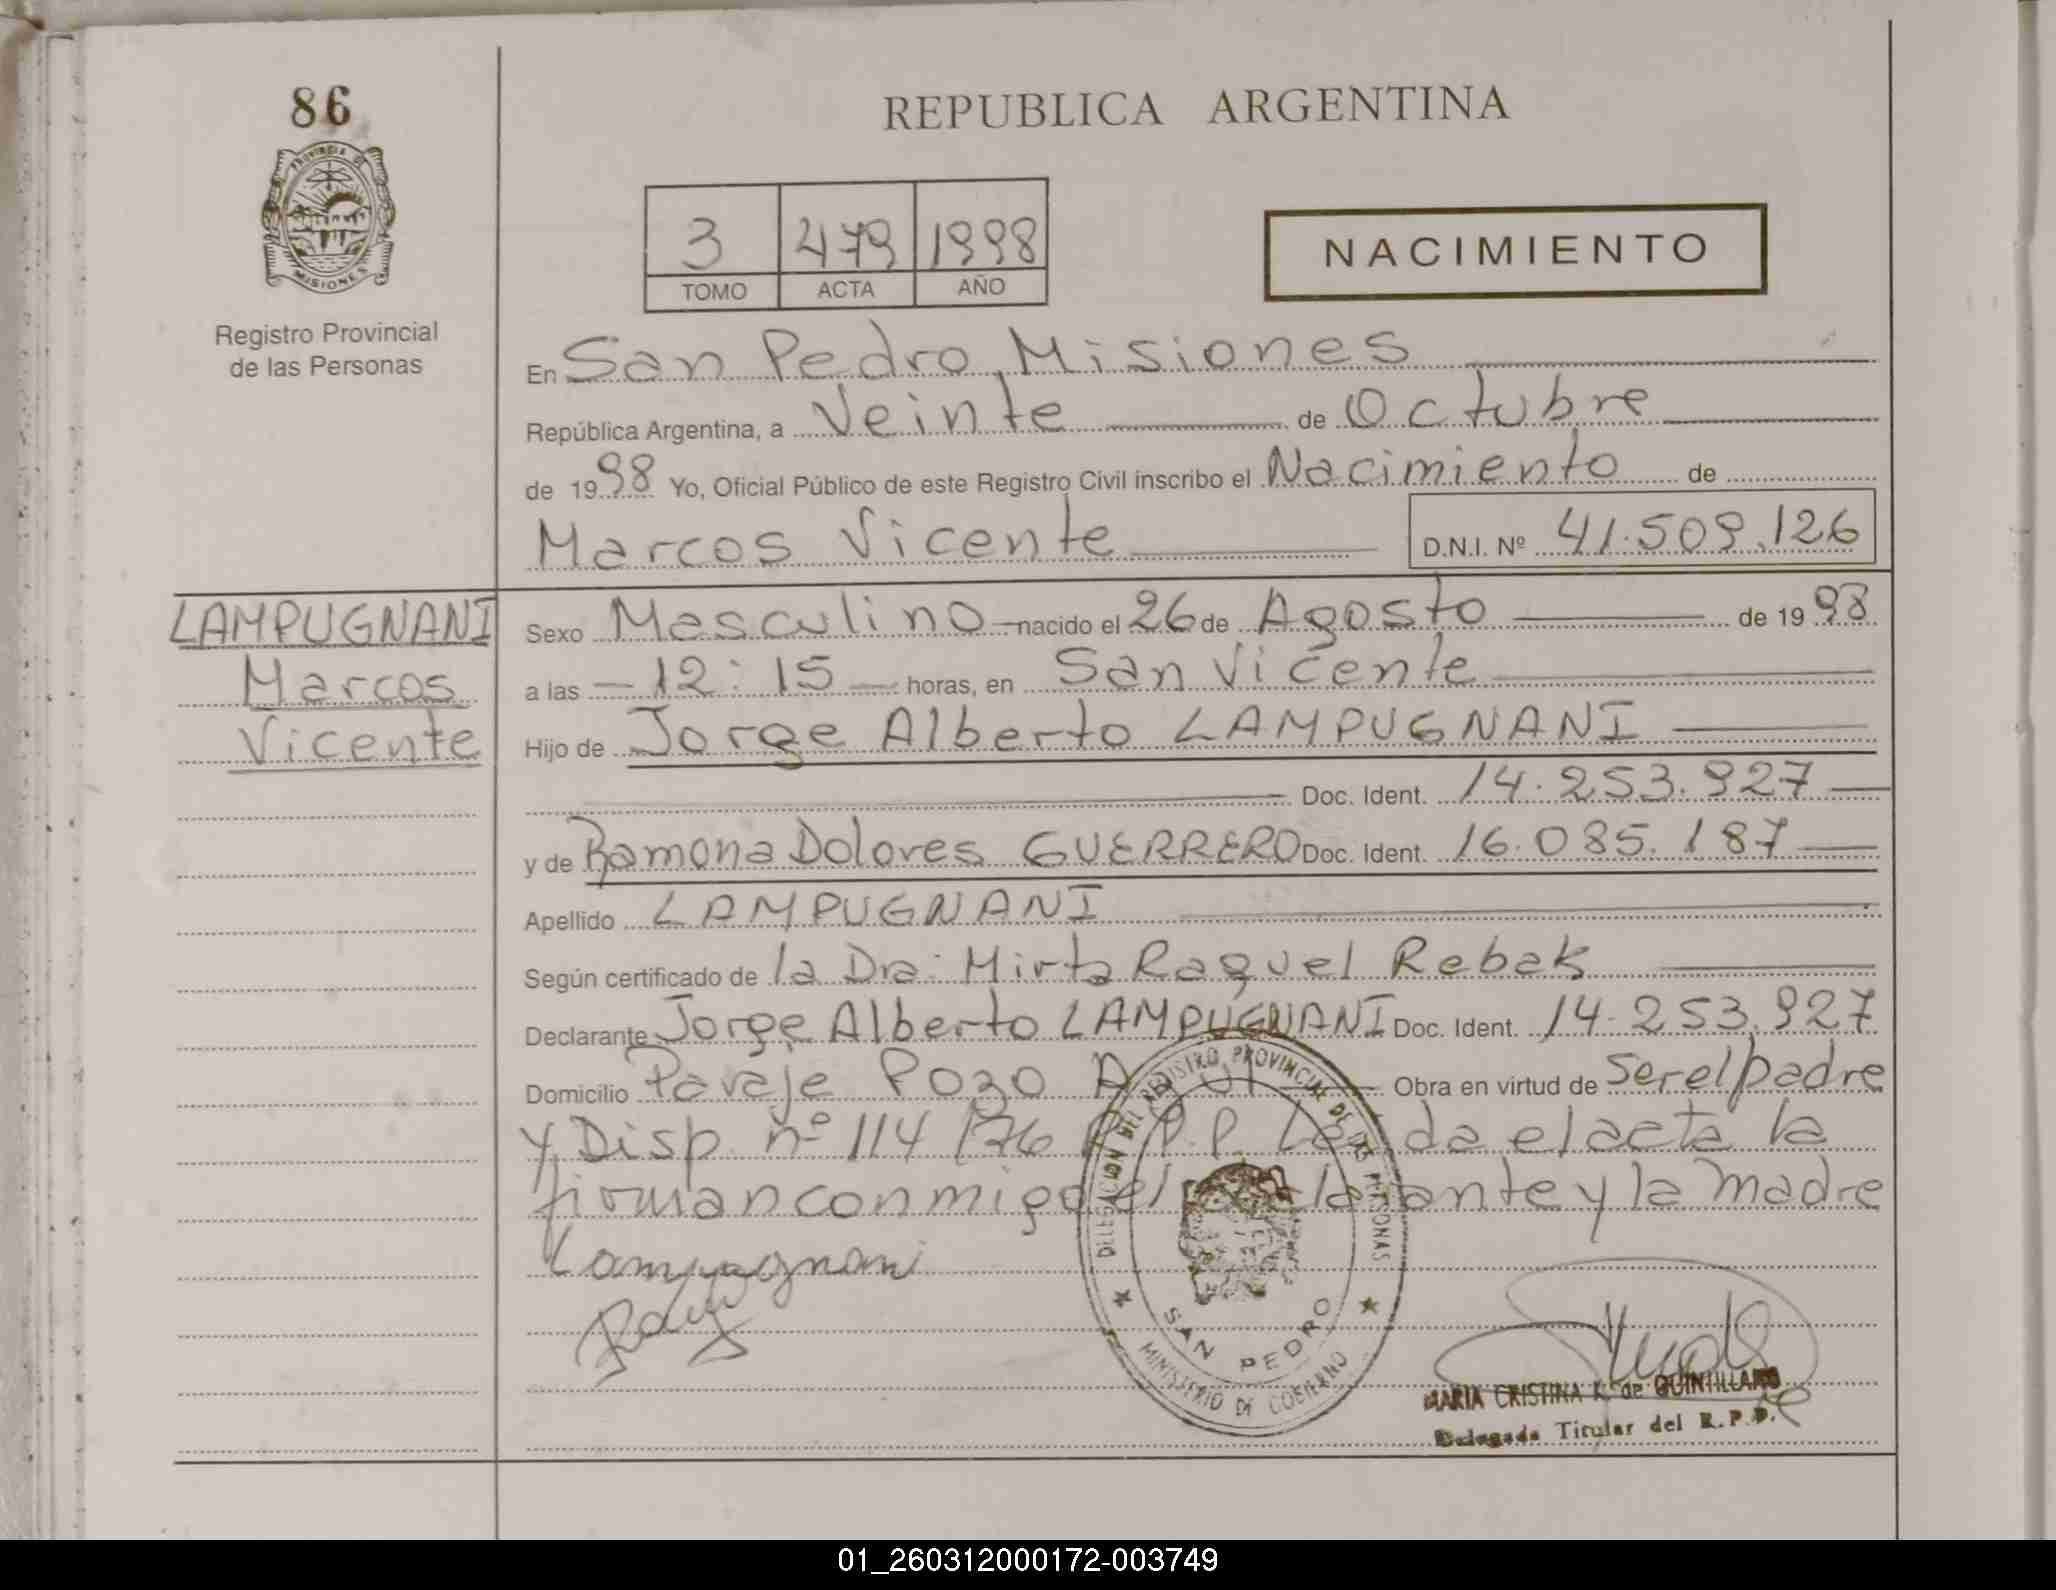 86
PROVINCIA DE MISIONES
Registro Provincial
de las Personas
REPUBLICA ARGENTINA
3 479 1998
TOMO ACTA AÑO
NACIMIENTO
En San Pedro, Misiones
República Argentina, a Veinte de Octubre
de 1998 Yo, Oficial Público de este Registro Civil inscribo el Nacimiento de
Marcos Vicente D.N.I. Nº 41.509.126
LAMPUGNANI
Marcos
Vicente
Sexo Masculino nacido el 26 de Agosto de 1998
a las 12:15 horas, en San Vicente
Hijo de Jorge Alberto LAMPUGNANI
Doc. Ident. 14.253.927
y de Ramona Dolores GUERRERO Doc. Ident. 16.085.187
Apellido LAMPUGNANI
Según certificado de la Dra. Mirta Raquel Rebak
Declarante Jorge Alberto LAMPUGNANI Doc. Ident. 14.253.927
Domicilio Paraje Pozo Obra en virtud de ser el padre
y Disp. nº 114/76 R.P.P. Leída el acta la
firman conmigo el declarante y la madre
Lampugnani
DELEGACION DEL REGISTRO PROVINCIAL DE LAS PERSONAS
SAN PEDRO
MINISTERIO DE GOBIERNO
MARIA CRISTINA K. de QUINTILLANO
Delegada Titular del R.P.P.
01_260312000172-003749